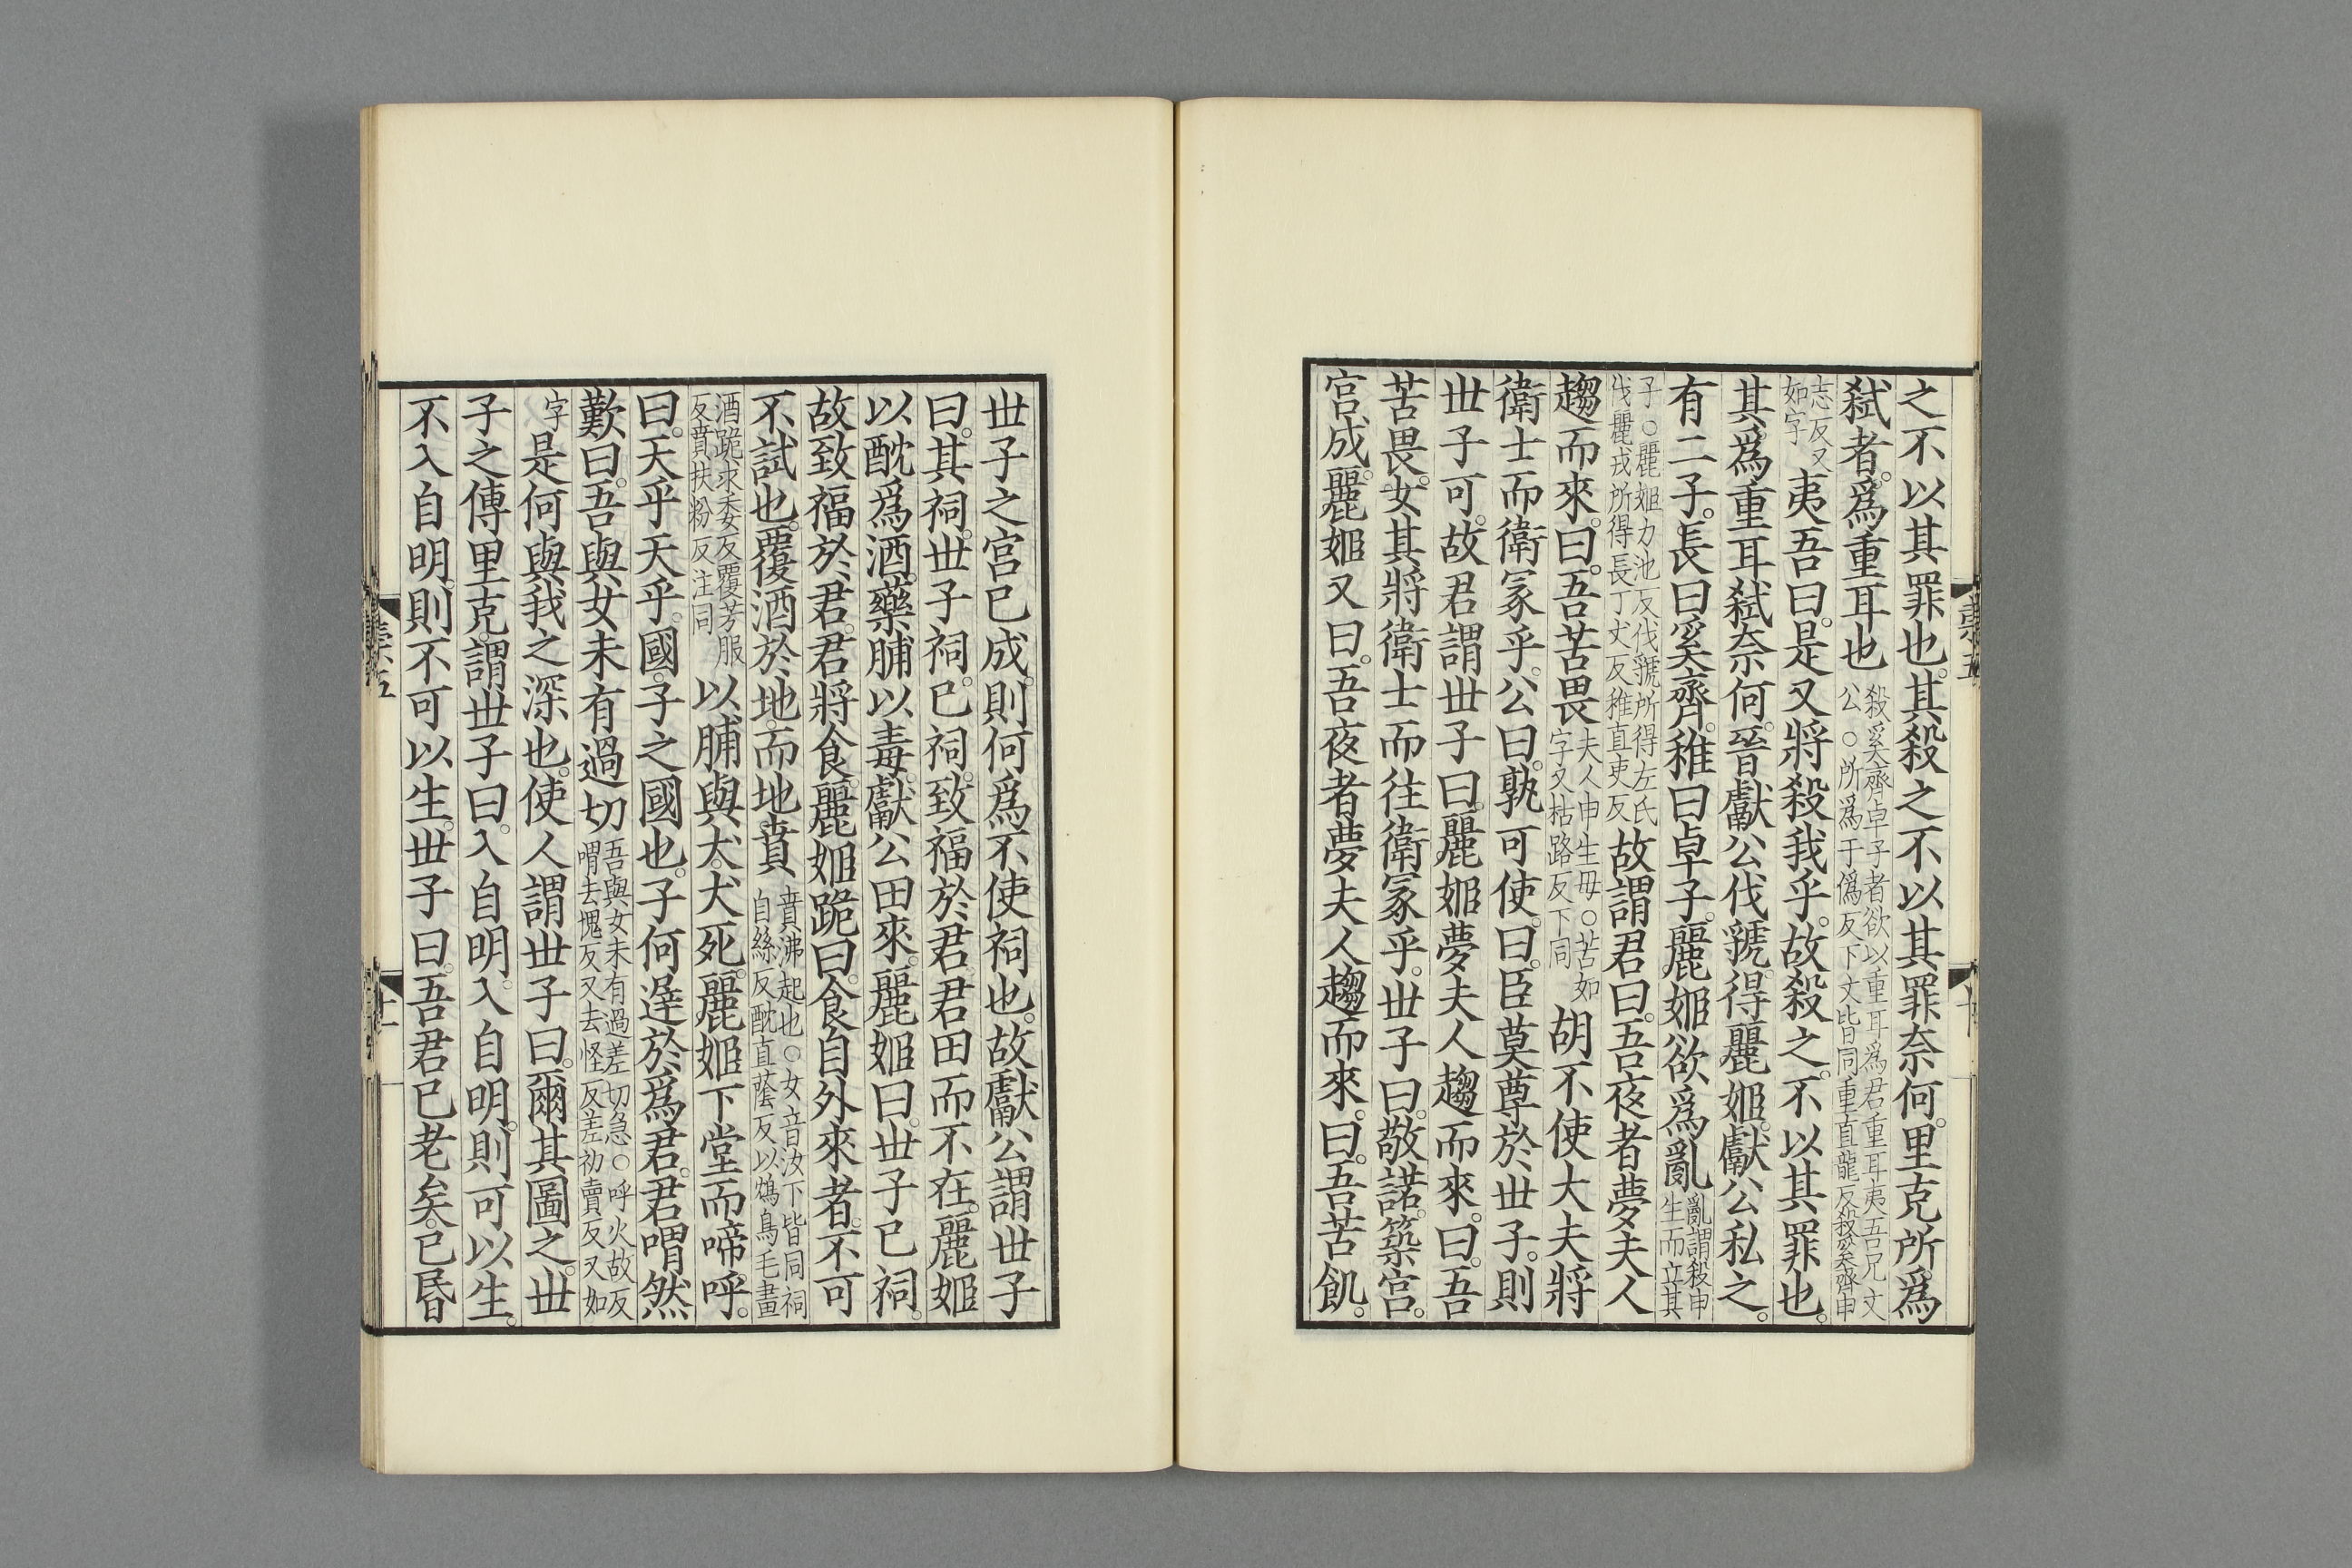 之不以其罪也。其殺之不以其罪奈何。里克所爲
弑者。爲重耳也殺奚齊卓子者欲以重耳爲君重耳夷吾兄文公。○所爲于僞反下文皆同重直龍反殺奚齊申
志反又如字夷吾曰。是又將殺我乎。故殺之。不以其罪也。
其爲重耳弑奈何。晉獻公伐虢。得麗姬。獻公私之。
有二子。長曰奚齊。稚曰卓子。麗姬欲爲亂亂謂殺申生而立其
子。○麗姬力池反伐虢所得左氏伐麗戎所得長丁丈反稚直吏反故謂君曰。吾夜者夢夫人
趨而來。曰。吾苦畏夫人申生母○苦如字又枯路反下同胡不使大夫將
衛士而衛冢乎。公曰。孰可使。曰。臣莫尊於世子。則
世子可。故君謂世子曰。麗姬夢夫人趨而來。曰。吾
苦畏。女其將衛士而往衛冢乎。世子曰。敬諾。築宮。
宮成。麗姬又曰。吾夜者夢夫人趨而來。曰。吾苦飢。
世子之宮已成。則何爲不使祠也。故獻公謂世子
曰。其祠。世子祠。已祠。致福於君。君田而不在。麗姬
以酖爲酒。藥脯以毒。獻公田來。麗姬曰。世子已祠。
故致福於君。君將食。麗姬跪曰。食自外來者。不可
不試也。覆酒於地。而地賁賁沸起也○女音汝下皆同祠自絲反酖直蔭反以鴆鳥毛畫
酒跪求委反覆芳服反賁扶粉反注同以脯與犬。犬死。麗姬下堂而啼呼。
曰。天乎天乎。國。子之國也。子何遲於爲君。君喟然
歎曰。吾與女未有過切吾與女未有過差切急○呼火故反喟去愧反又去怪反差初賣反又如
字是何與我之深也。使人謂世子曰。爾其圖之。世
子之傅里克。謂世子曰。入自明。入自明。則可以生。
不入自明。則不可以生。世子曰。吾君已老矣。已昬